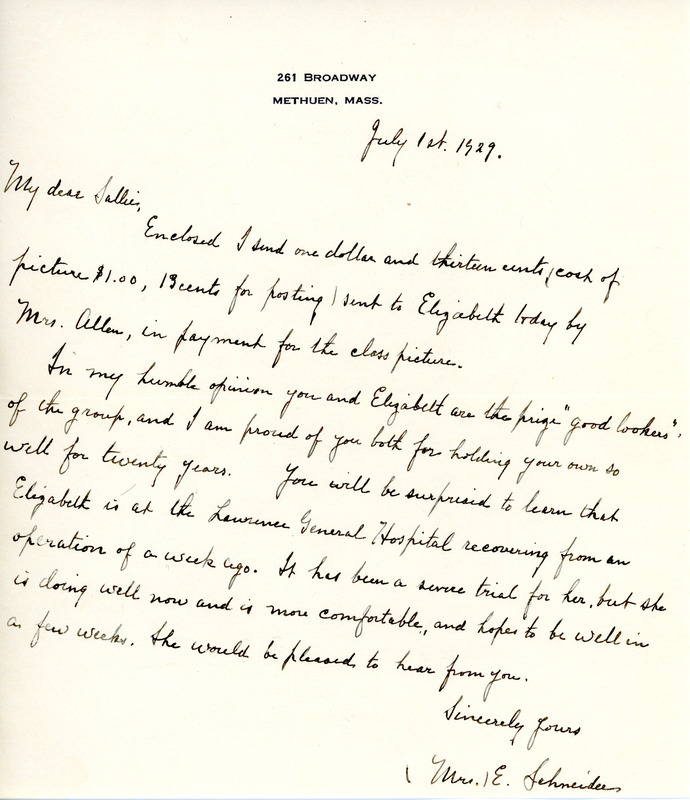 261 BROADWAY
METHUEN, MASS.
July 1st. 1929.
My dear Sallie,
Enclosed I send one dollar and thirteen cents, (cost of
picture $1.00, 13 cents for posting) sent to Elizabeth today by
Mrs. Allen, in payment for the class picture.
In my humble opinion you and Elizabeth are the prize "good lookers"
of the group, and I am proud of you both for holding your own so
well for twenty years. You will be surprised to learn that
Elizabeth is at the Lawrence General Hospital recovering from an
operation of a week ago. It has been a severe trial for her, but she
is doing well now and is more comfortable, and hopes to be well in
a few weeks. She would be pleased to hear from you.
Sincerely yours
(Mrs.) E. Schneider